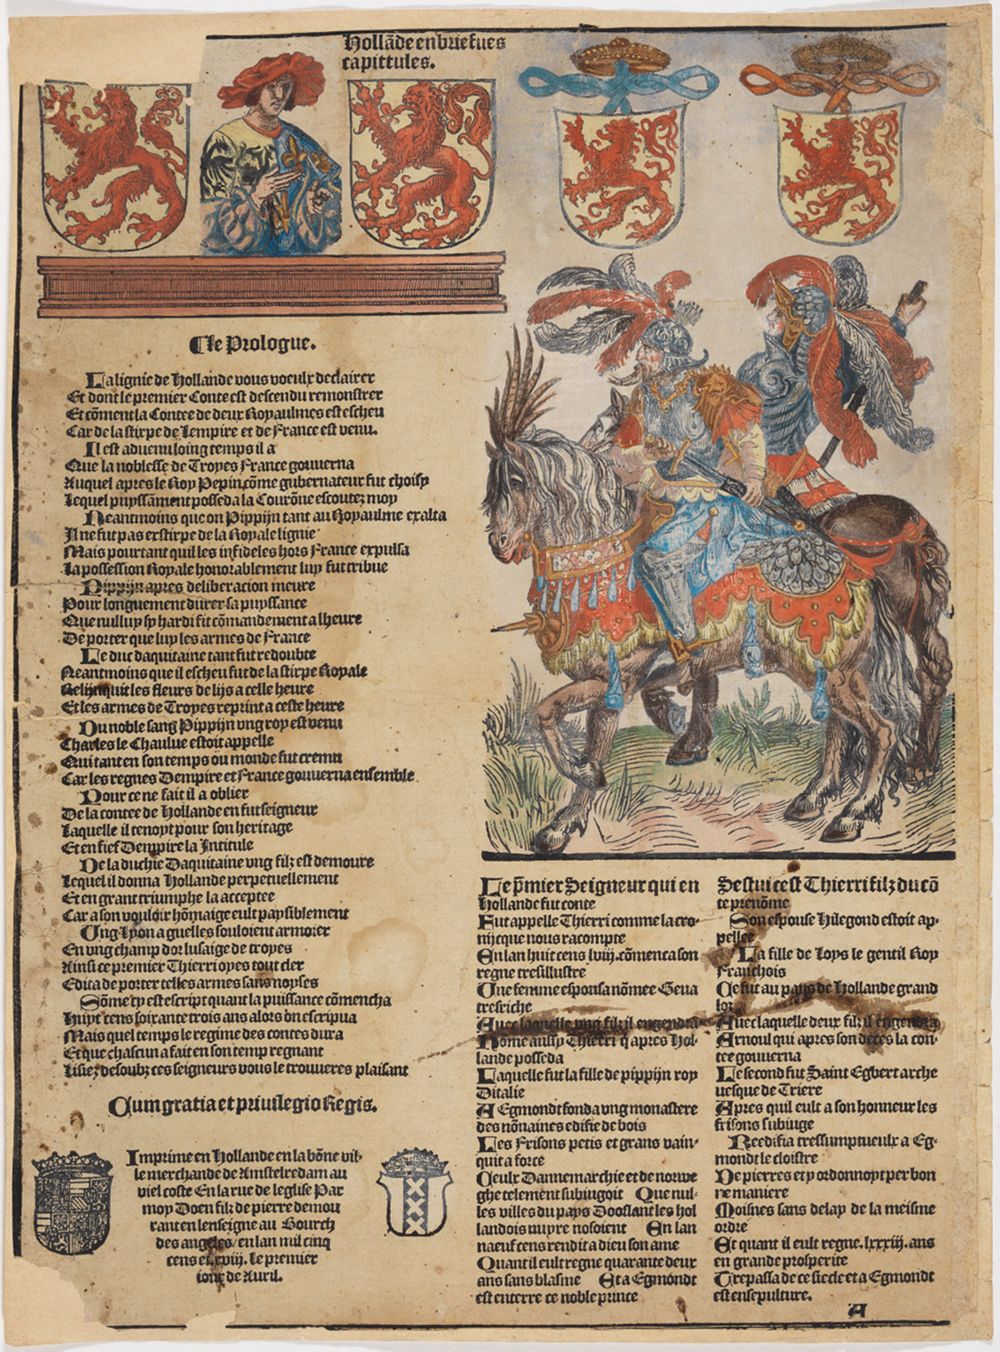 Hollãde en briefues
capittules.
¶Le Prologue.
La lignie de Hollande vous voeulx declairer
Et dont le premier Conte est descendu remonstrer
Et cõment la Contee de deux Royaulmes est escheu
Car de la stirpe de Lempire et de France est venu.
Il est aduenu loing temps il a
Que la noblesse de Troyes France gouuerna
Auquel apres le Roy Pepin, cõme gubernateur fut choisy
Lequel puyssãment posseda la Courõne escoutez moy
Neantmoins que on Pippijn tant au Royaulme exalta
Il ne fut pas exstirpe de la Royale lignie
Mais pourtant quil les infideles hors France expulsa
La possession Royale honorablement luy fut tribue
Pippijn apres deliberacion meure
Pour longuement durer sa puyssance
Que nul luy sy hardi fit cõmandement a lheure
De porter que luy les armes de France
Le duc daquitaine tant fut redoubte
Neantmoins que il escheu fut de la stirpe Royale
Relinquit les fleurs de lijs a celle heure
Et les armes de Troyes reprint a ceste heure
Du noble sang Pippijn vng roy est venu
Charles le Chaulue estoit appelle
Qui tant en son temps ou monde fut cremu
Car les regnes Dempire et France gouuerna ensemble
Pour ce ne fait il a oblier
De la contee de Hollande en fut seigneur
Laquelle il tenoyt pour son heritage
Et en fief Dempire la Intitule
De la duchie Daquitaine vng filz est demoure
Lequel il donna Hollande perpetuellement
Et en grant triumphe la acceptee
Car a son vouloir hõmaige eult paysiblement
Ung Lyon a guelles souloient armorer
En vng champ dor lusaige de troyes
Ainsi ce premier Thierri oyes tout cler
Edica de porter telles armes sans noyses
Sõme cy est escript quant la puissance cõmencha
Huyt cens soixante trois ans alors on escripua
Mais quel temps le regime des contes dura
Et que chascun a fait en son temp regnant
Lisiez desoubz ces seigneurs vous le trouueres plaisant
Cum gratia et priuilegio Regis.
Imprime en Hollande en la bõne vil-
le merchande de Amstelredam au
viel coste En la rue de leglise Par
moy Doen filz de pierre demou
rant en lenseigne au Bourch
des angeles, en lan mil cinq
cens et xviij. le premier
iour de Auril.
Le p̃mier Seigneur qui en
Hollande fut conte
Fut appelle Thierri comme la cro-
nijcque nous racompte
En lan huit cens lviij. cõmenca son
regne tresillustre
Une femme esponsa nõmee Geua
tresriche
Auec laquelle vng filz il engendra
Nome aussy Thierri q̃ apres Hol-
lande posseda
Laquelle fut la fille de pippijn roy
Ditalie
A Egmondt fonda vng monastere
des nõnaines edifie de bois
Les Frisons petis et grans vain-
quit a force
Ceulx Dannemarchie et de norwe
ghe telement subiugoit Que nul-
les villes du pays Dooslant les hol
landois nuyre nosoient En lan
naeuf cens rendit a dieu son ame
Quant il eult regne quarante deux
ans sans blasme Et a Egmondt
est enterre ce noble prince
Sestui cest Thierri filz du cõ
te prenõme
Son espouse Hilegond estoit ap-
pellee
La fille de Loys le gentil Roy
Franchois
Ce fut au pays de Hollande grand
loz
Auec laquelle deux filz il engendra
Arnoul qui apres son deces la con-
tee gouuerna
Le second fut Saint Egbert arche
uesque de Triere
Apres quil eult a son honneur les
frisons subiuge
Reedifia tressumptueulx a Eg-
mondt le cloistre
De pierres et y ordonnoyt per bon
ne maniere
Moisnes sans delay de la meisme
ordre
Et quant il eult regne. lxxxiij. ans
en grande prosperite
Trepassa de ce siecle et a Egmondt
est ensepulture.
A